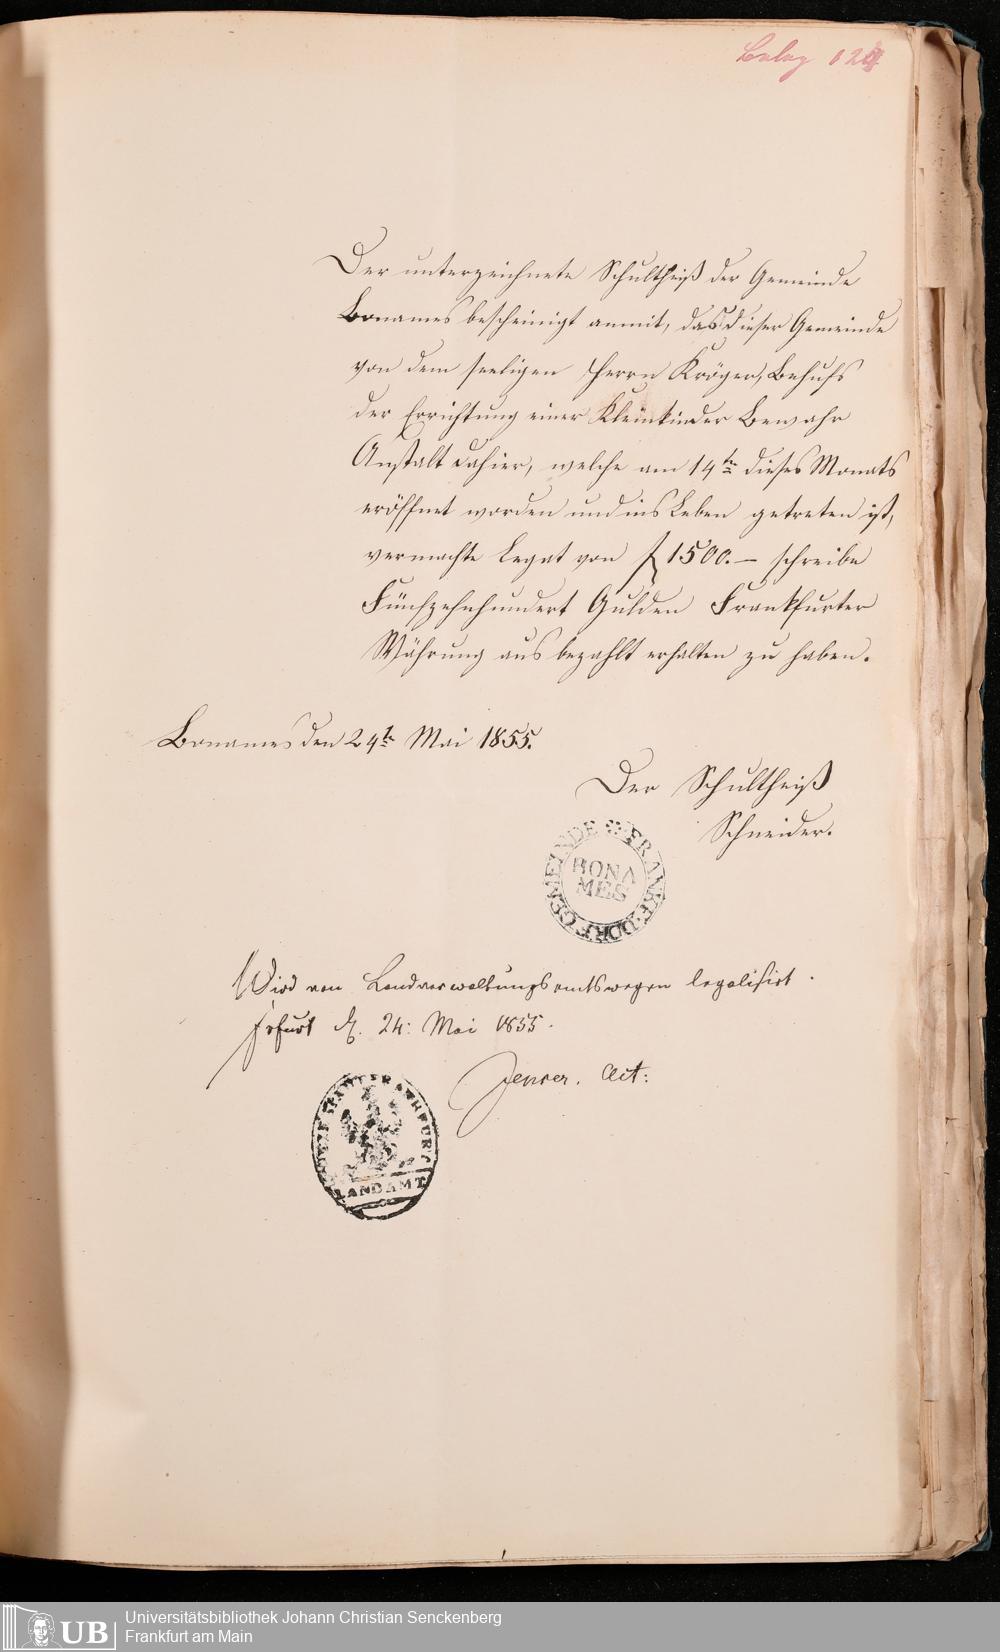 Beleg 124
Der unterzeichnete Schultheiß der Gemeinde
Bonames bescheinigt anmit, daß dieser Gemeinde
von dem seeligen Herrn Kröger, Behufs
der Errichtung einer Kleinkinder Bewahr
Anstalt dahier, welche am 14ten dieses Monats
eröffnet worden und ins Leben getreten ist,
vermachte Legat von f 1500.— schreibe
Fünfzehnhundert Gulden Frankfurter
Währung ausbezahlt erhalten zu haben.
Bonames den 24t Mai 1855.
Der Schultheiß
Schneider.
GEMEINDE FRANKF. DORF
BONA
MES
Wird von Landverwaltungsamtswegen legalisirt.
Frfurt d. 24: Mai 1855.
Act:
STADT FRANKFURT
LANDAMT
UB
Universitätsbibliothek Johann Christian Senckenberg
Frankfurt am Main